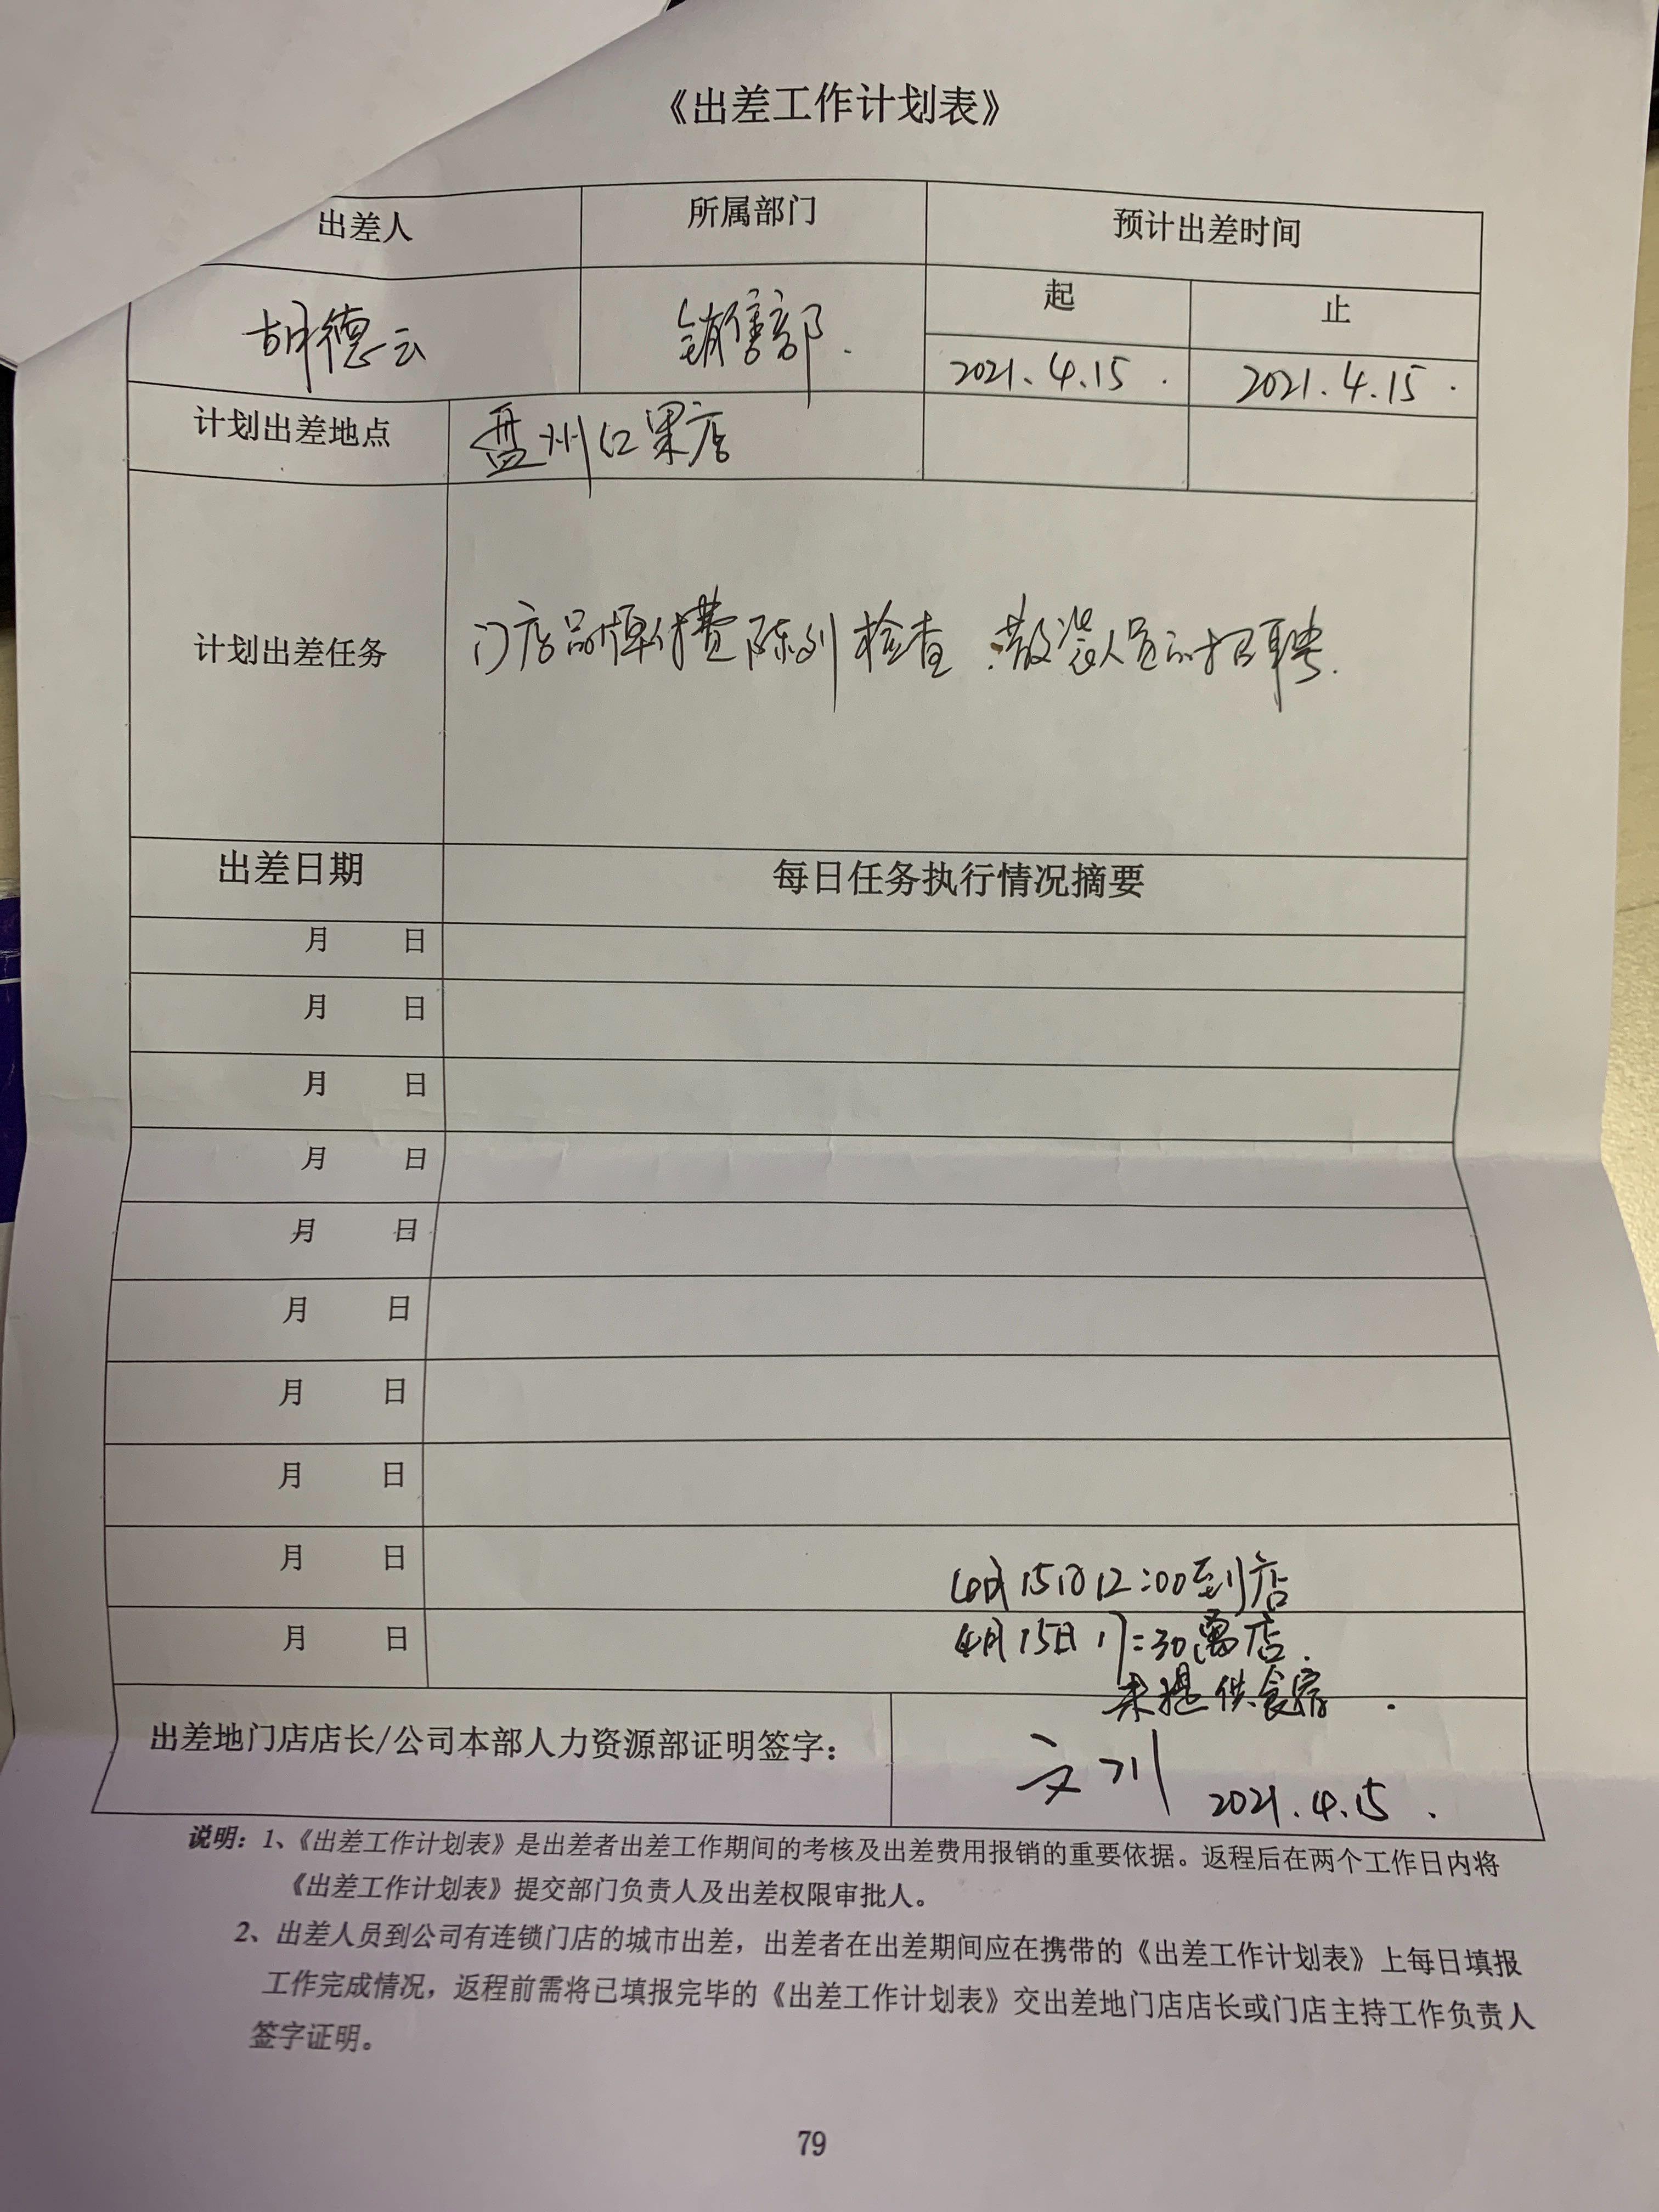 《出差工作计划表》
出差人 所属部门 预计出差时间
起 止
胡德云 销售部.
2021.4.15. 2021.4.15.
计划出差地点 盘州红果店
计划出差任务 门店品牌付费陈列检查.散装人员的招聘.
出差日期 每日任务执行情况摘要
月 日
月 日
月 日
月 日
月 日
月 日
月 日
月 日
月 日
4月15日12:00到店
月 日
4月15日17:30离店.
未提供食宿.
出差地门店店长/公司本部人力资源部证明签字：
文川 2021.4.15.
说明：1、《出差工作计划表》是出差者出差工作期间的考核及出差费用报销的重要依据。返程后在两个工作日内将
《出差工作计划表》提交部门负责人及出差权限审批人。
2、出差人员到公司有连锁门店的城市出差，出差者在出差期间应在携带的《出差工作计划表》上每日填报
工作完成情况，返程前需将已填报完毕的《出差工作计划表》交出差地门店店长或门店主持工作负责人
签字证明。
79